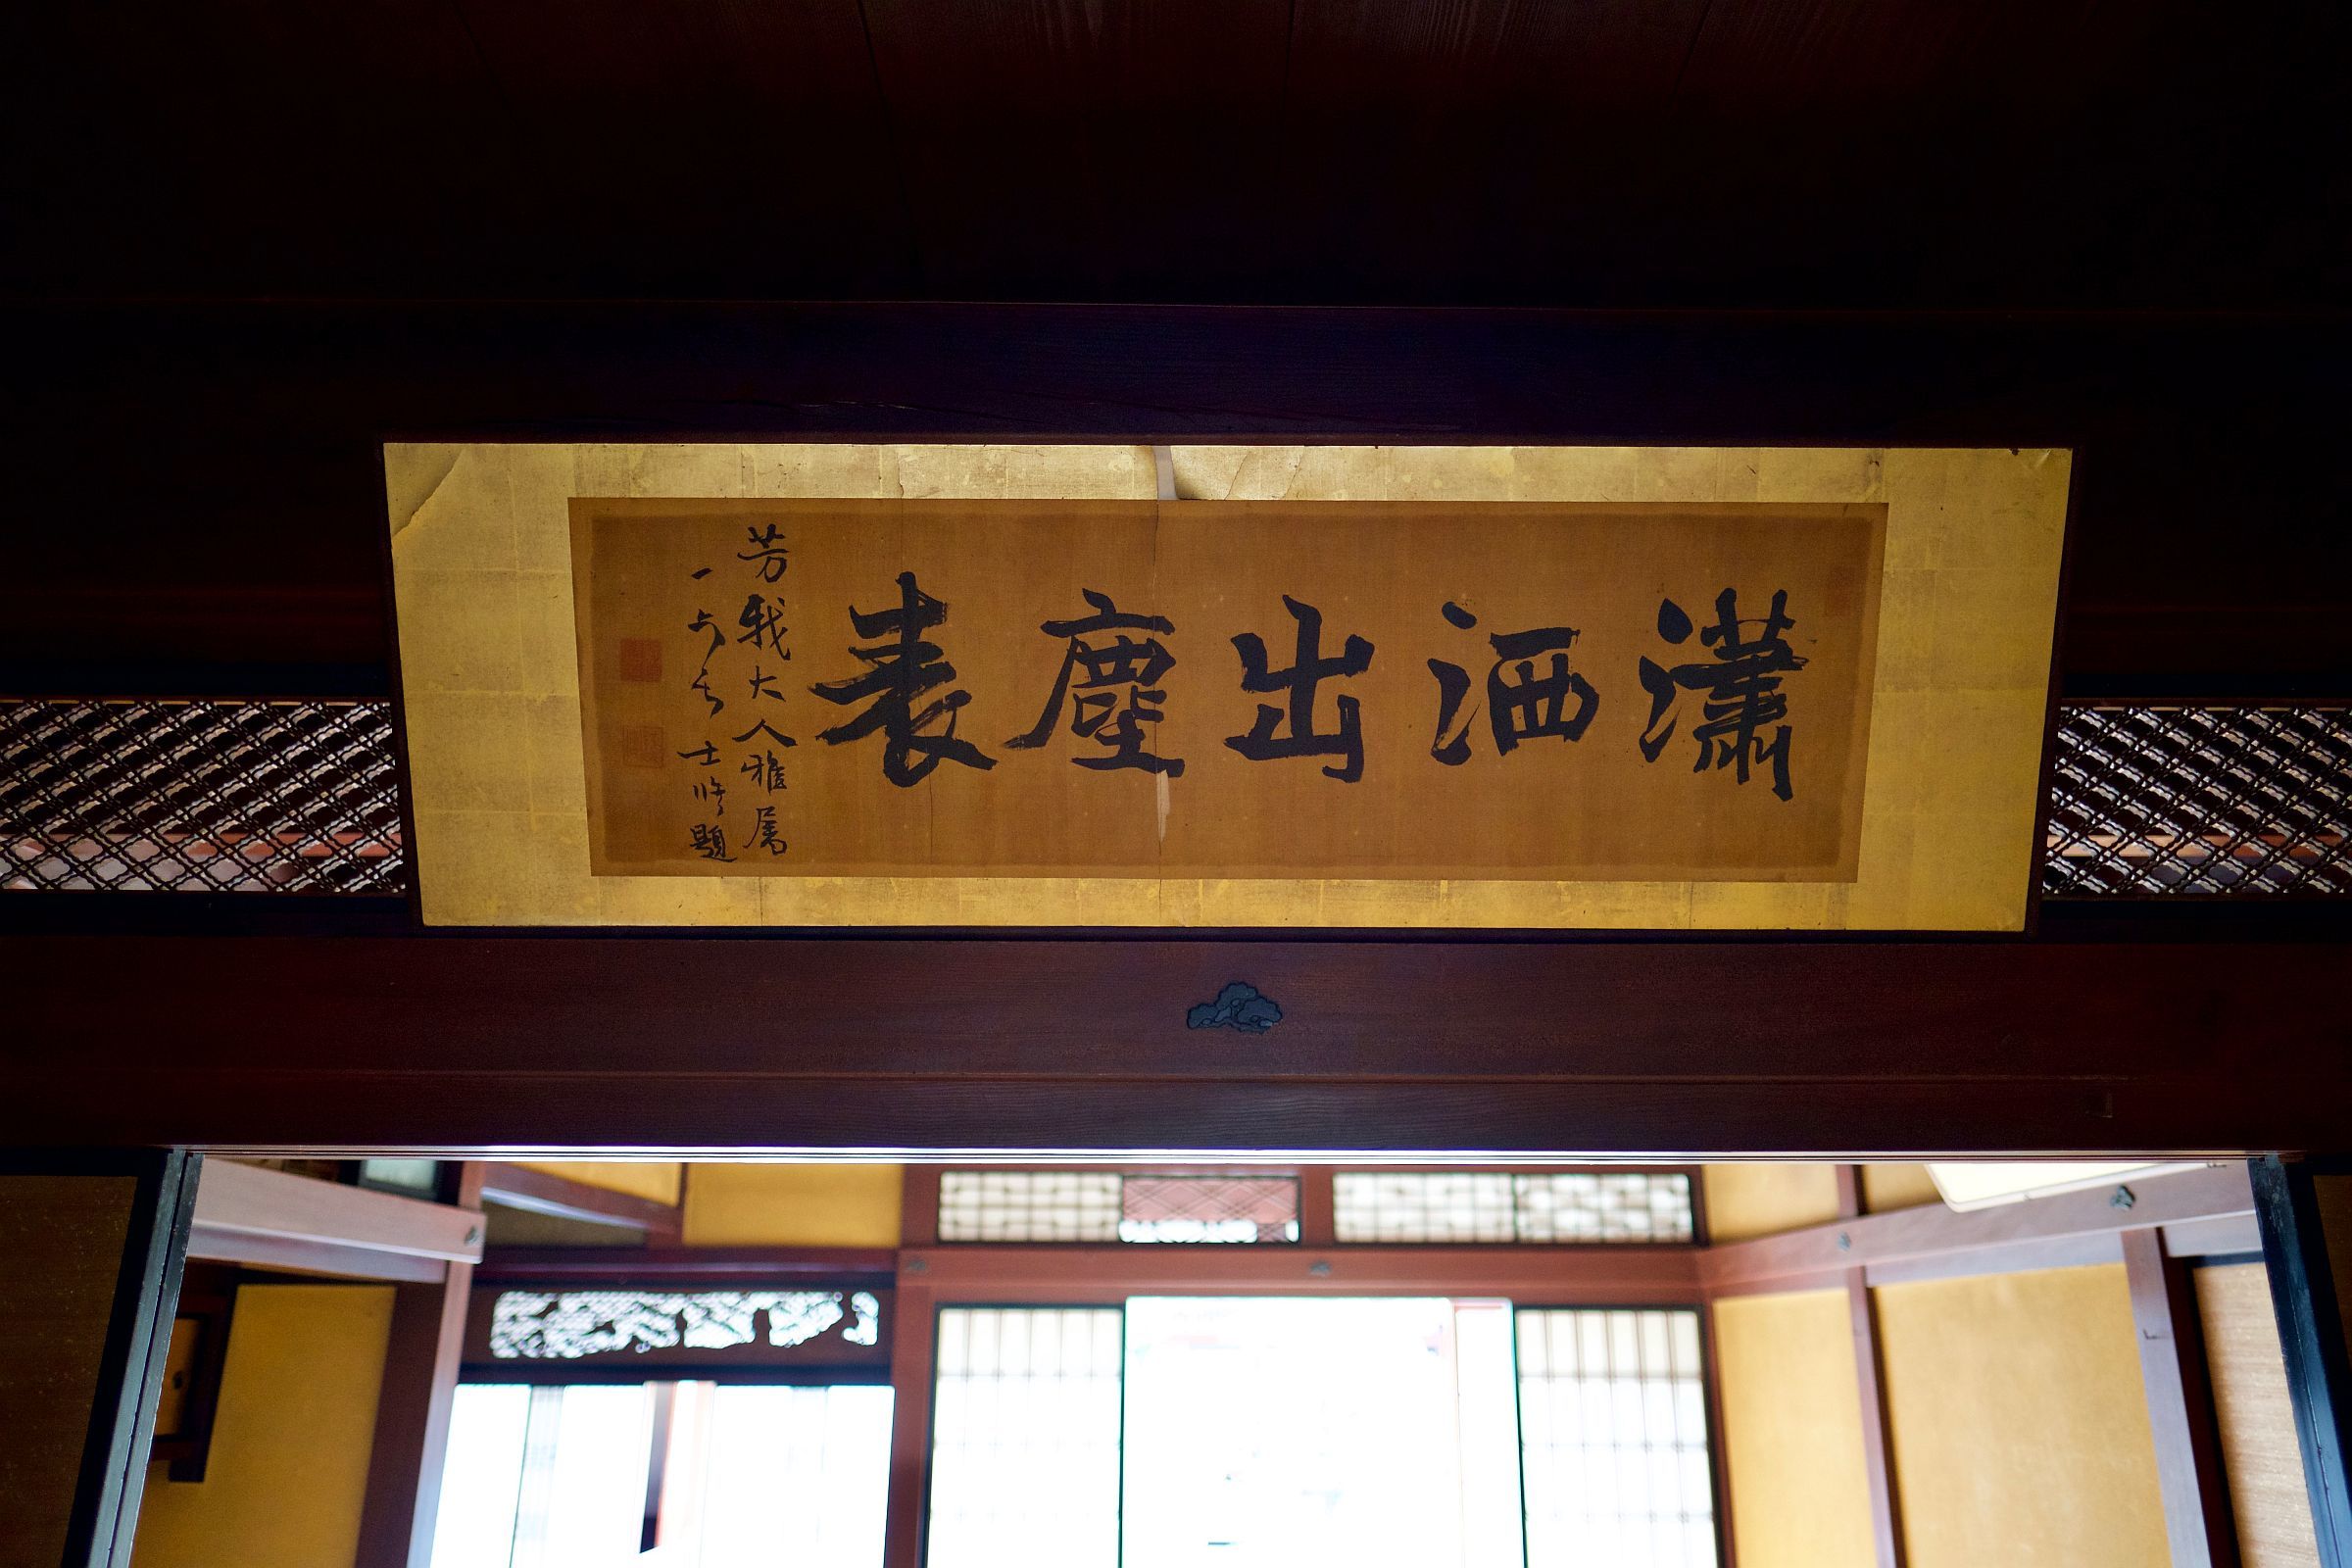 瀟洒出塵表
芳我大人雅属
一 士 題